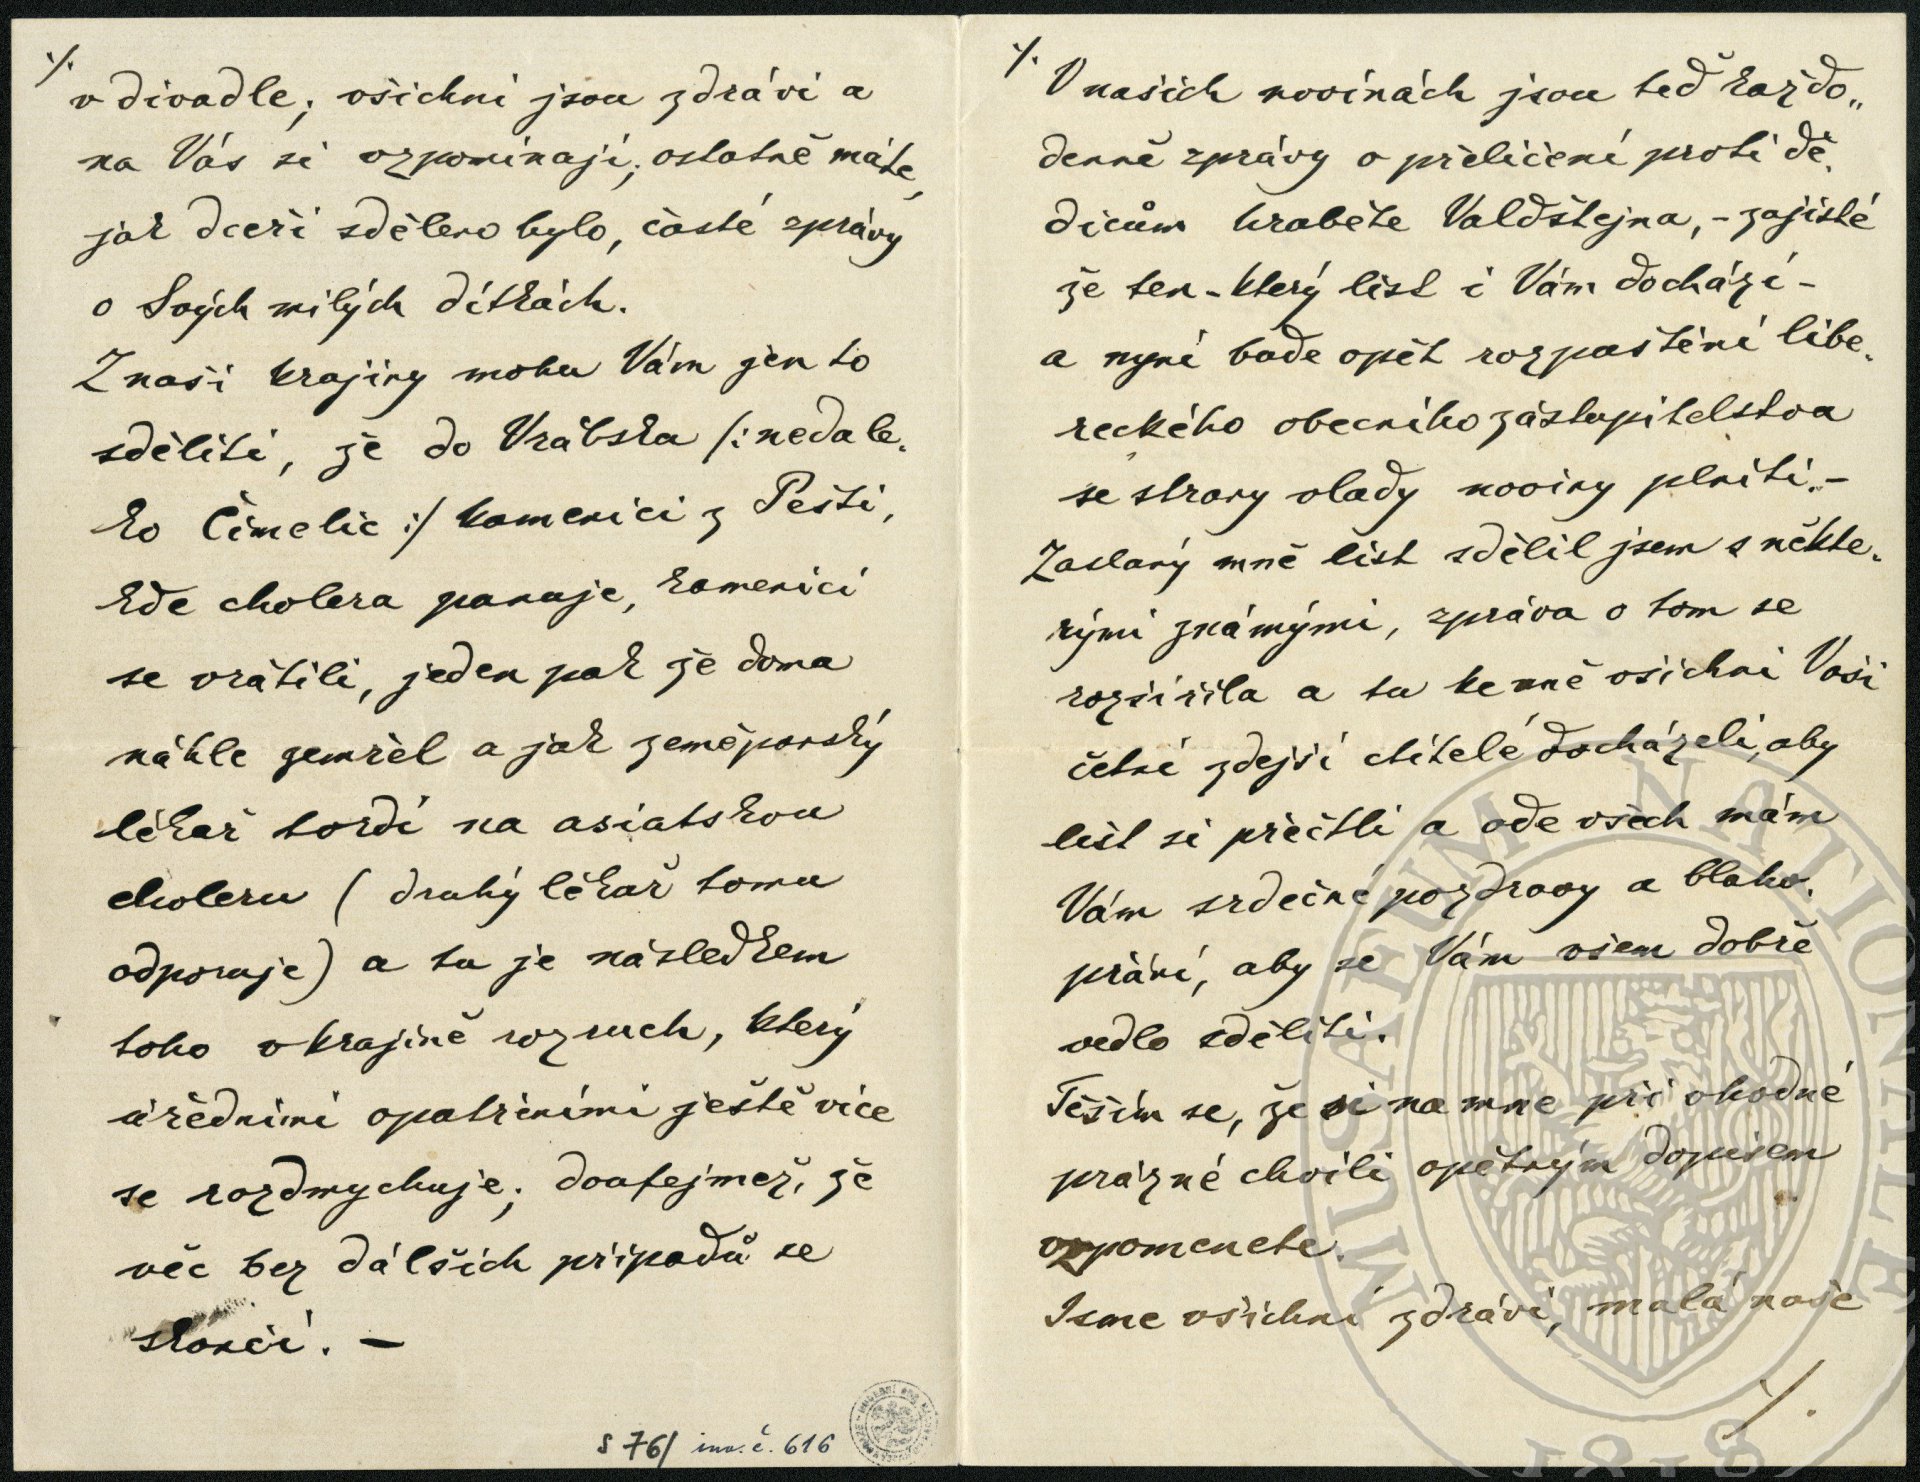 ./.
v divadle; všichni jsou zdrávi a
na Vás si vzpomínají; ostatně máte,
jak dceři sděleno bylo, časté zprávy
o Svých milých dítkách.
Z naší krajiny mohu Vám jen to
sděliti, že do Vrábska /: nedale-
ko Čimelic :/ kameníci z Pešti,
kde cholera panuje, kameníci
se vrátili, jeden pak že doma
náhle zemřel a jak zeměpanský
lékař tvrdí na asiatskou
choleru ( druhý lékař tomu
odporuje ) a tu je následkem
toho v krajině rozruch, který
úředními opatřeními ještě více
se rozdmychuje; doufejmež, že
věc bez dálších případů se
skončí. —
S 76/ inv. č. 616
./.
V našich novinách jsou teď každo„
denně zprávy o přelíčení proti dě-
dicům hraběte Valdštejna, - zajisté
že ten - který list i Vám dochází -
a nyní bude opět rozpuštění libe-
reckého obecního zástupitelstva
se strany vlády noviny plniti. -
Zaslaný mně list sdělil jsem s někte-
rými známými, zpráva o tom se
rozšířila a tu ke mně všichni Vaši
četní zdejší ctitelé docházeli, aby
list si přečtli a ode všech mám
Vám srdečné pozdravy a blaho-
přání, aby se Vám všem dobře
vedlo sděliti.
Těším se, že si na mne při vhodné
prázné chvíli opětným dopisem
vzpomenete.
Jsme všichni zdrávi, malá naše
./.
MUSAEUM NATIONALE
1818